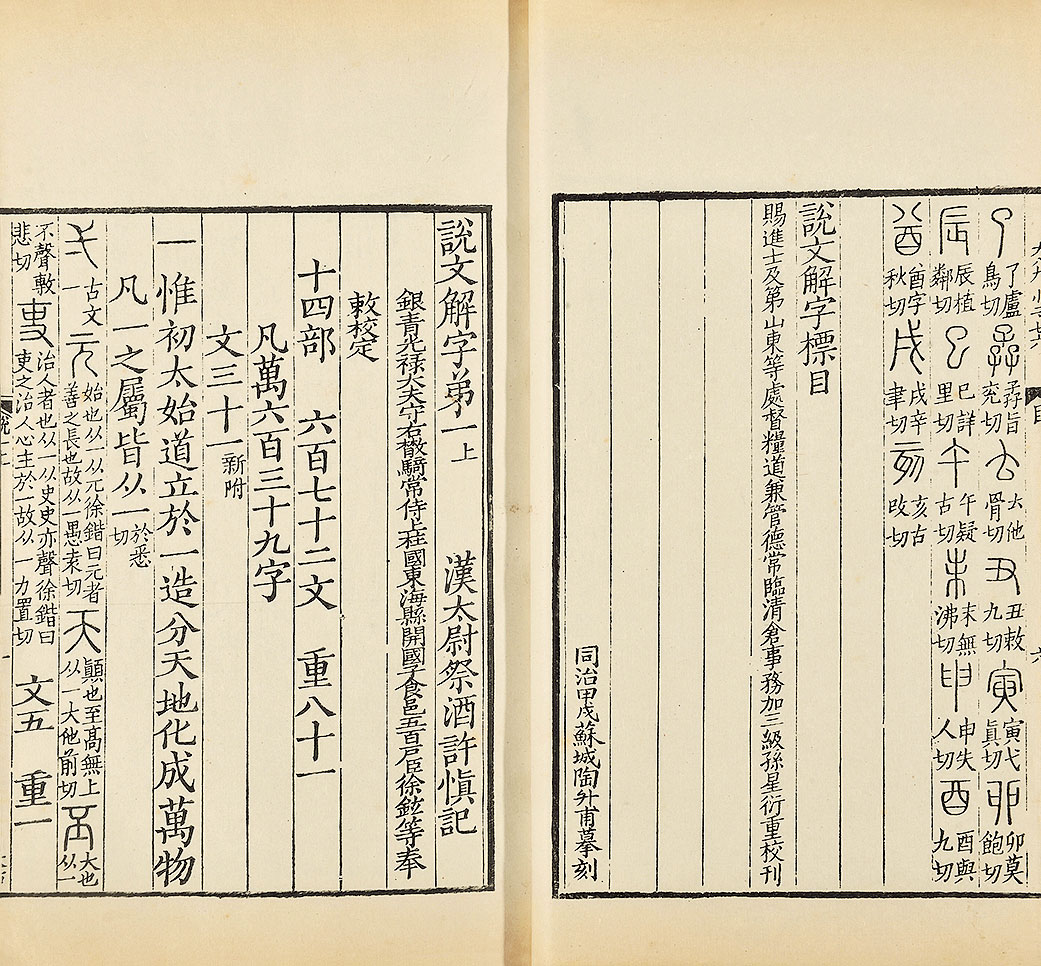 了了盧鳥切孨孨旨兗切𠫓𠫓他骨切丑丑敕九切寅寅弋眞切卯卯莫飽切
辰辰植鄰切巳巳詳里切午午疑古切未未無沸切申申失人切酉酉與九切
酋酋字秋切戌戌辛聿切亥亥古改切
說文解字標目
賜進士及第山東等處督糧道兼管德常臨清倉事務加三級孫星衍重校刊
同治甲戌蘇城陶升甫摹刻
說文解字弟一上 漢太尉祭酒許愼記
銀青光禄大夫守右散騎常侍上柱國東海縣開國子食邑五百戶臣徐鉉等奉
敕校定
十四部 六百七十二文 重八十一
凡萬六百三十九字
文三十一新附
一惟初太始道立於一造分天地化成萬物
凡一之屬皆从一於悉切
弌古文一元始也从一从兀徐鍇曰元者善之長也故从一愚袁切天顚也至高無上从一大他前切丕大也从一
不聲敷悲切吏治人者也从一从史史亦聲徐鍇曰吏之治人心主於一故从一力置切 文五 重一
說一上
一